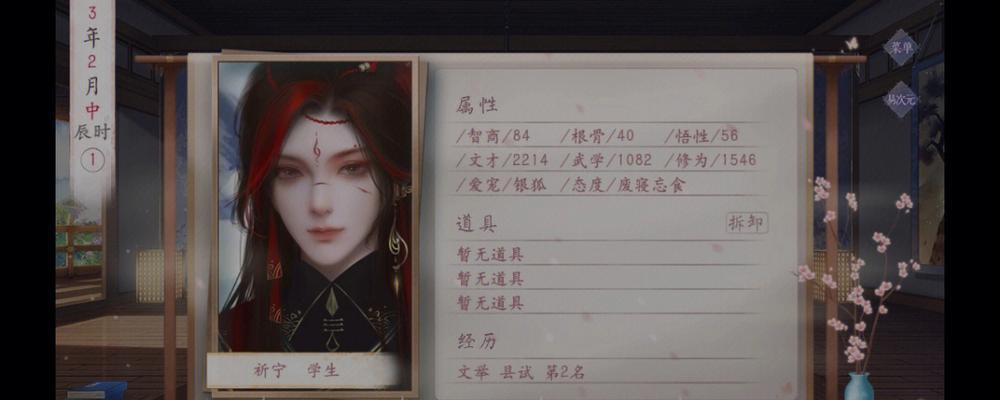 3年2月中
辰时
1
菜单
易次元
属性
/智商/84 /根骨/40 /悟性/56
/文才/2214 /武学/1082 /修为/1546
/爱宠/银狐 /态度/废寝忘食
道具 拆卸
暂无道具
暂无道具
暂无道具
经历
文举 县试 第2名
祈宁 学生